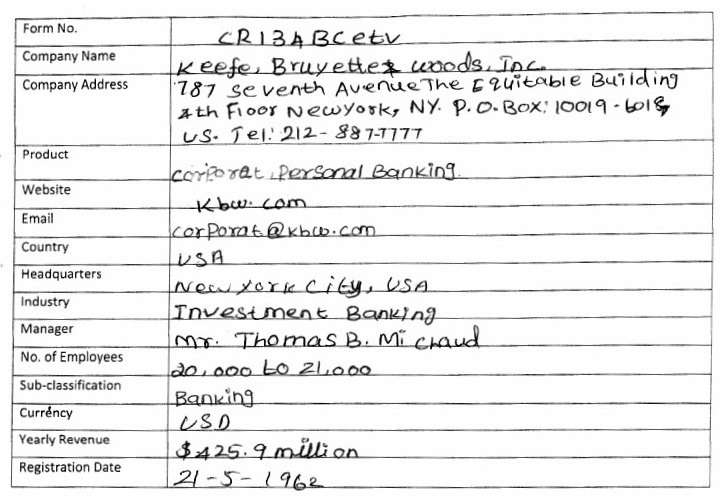 Form No.
CR13ABCetv
Company Name
Keefe, Bruyette & woods, Inc.
Company Address
787 Seventh Avenue The Equitable Building
4th Floor Newyork, NY. P.O.Box: 10019-6018,
US. Tel: 212-887-7777
Product
corporat, Personal Banking.
Website
kbw.com
Email
corporat@kbw.com
Country
USA
Headquarters
New York City, USA
Industry
Investment Banking
Manager
Mr. Thomas B. Michaud
No. of Employees
20,000 to 21,000
Sub-classification
Banking
Currency
USD
Yearly Revenue
$425.9 million
Registration Date
21-5-1962